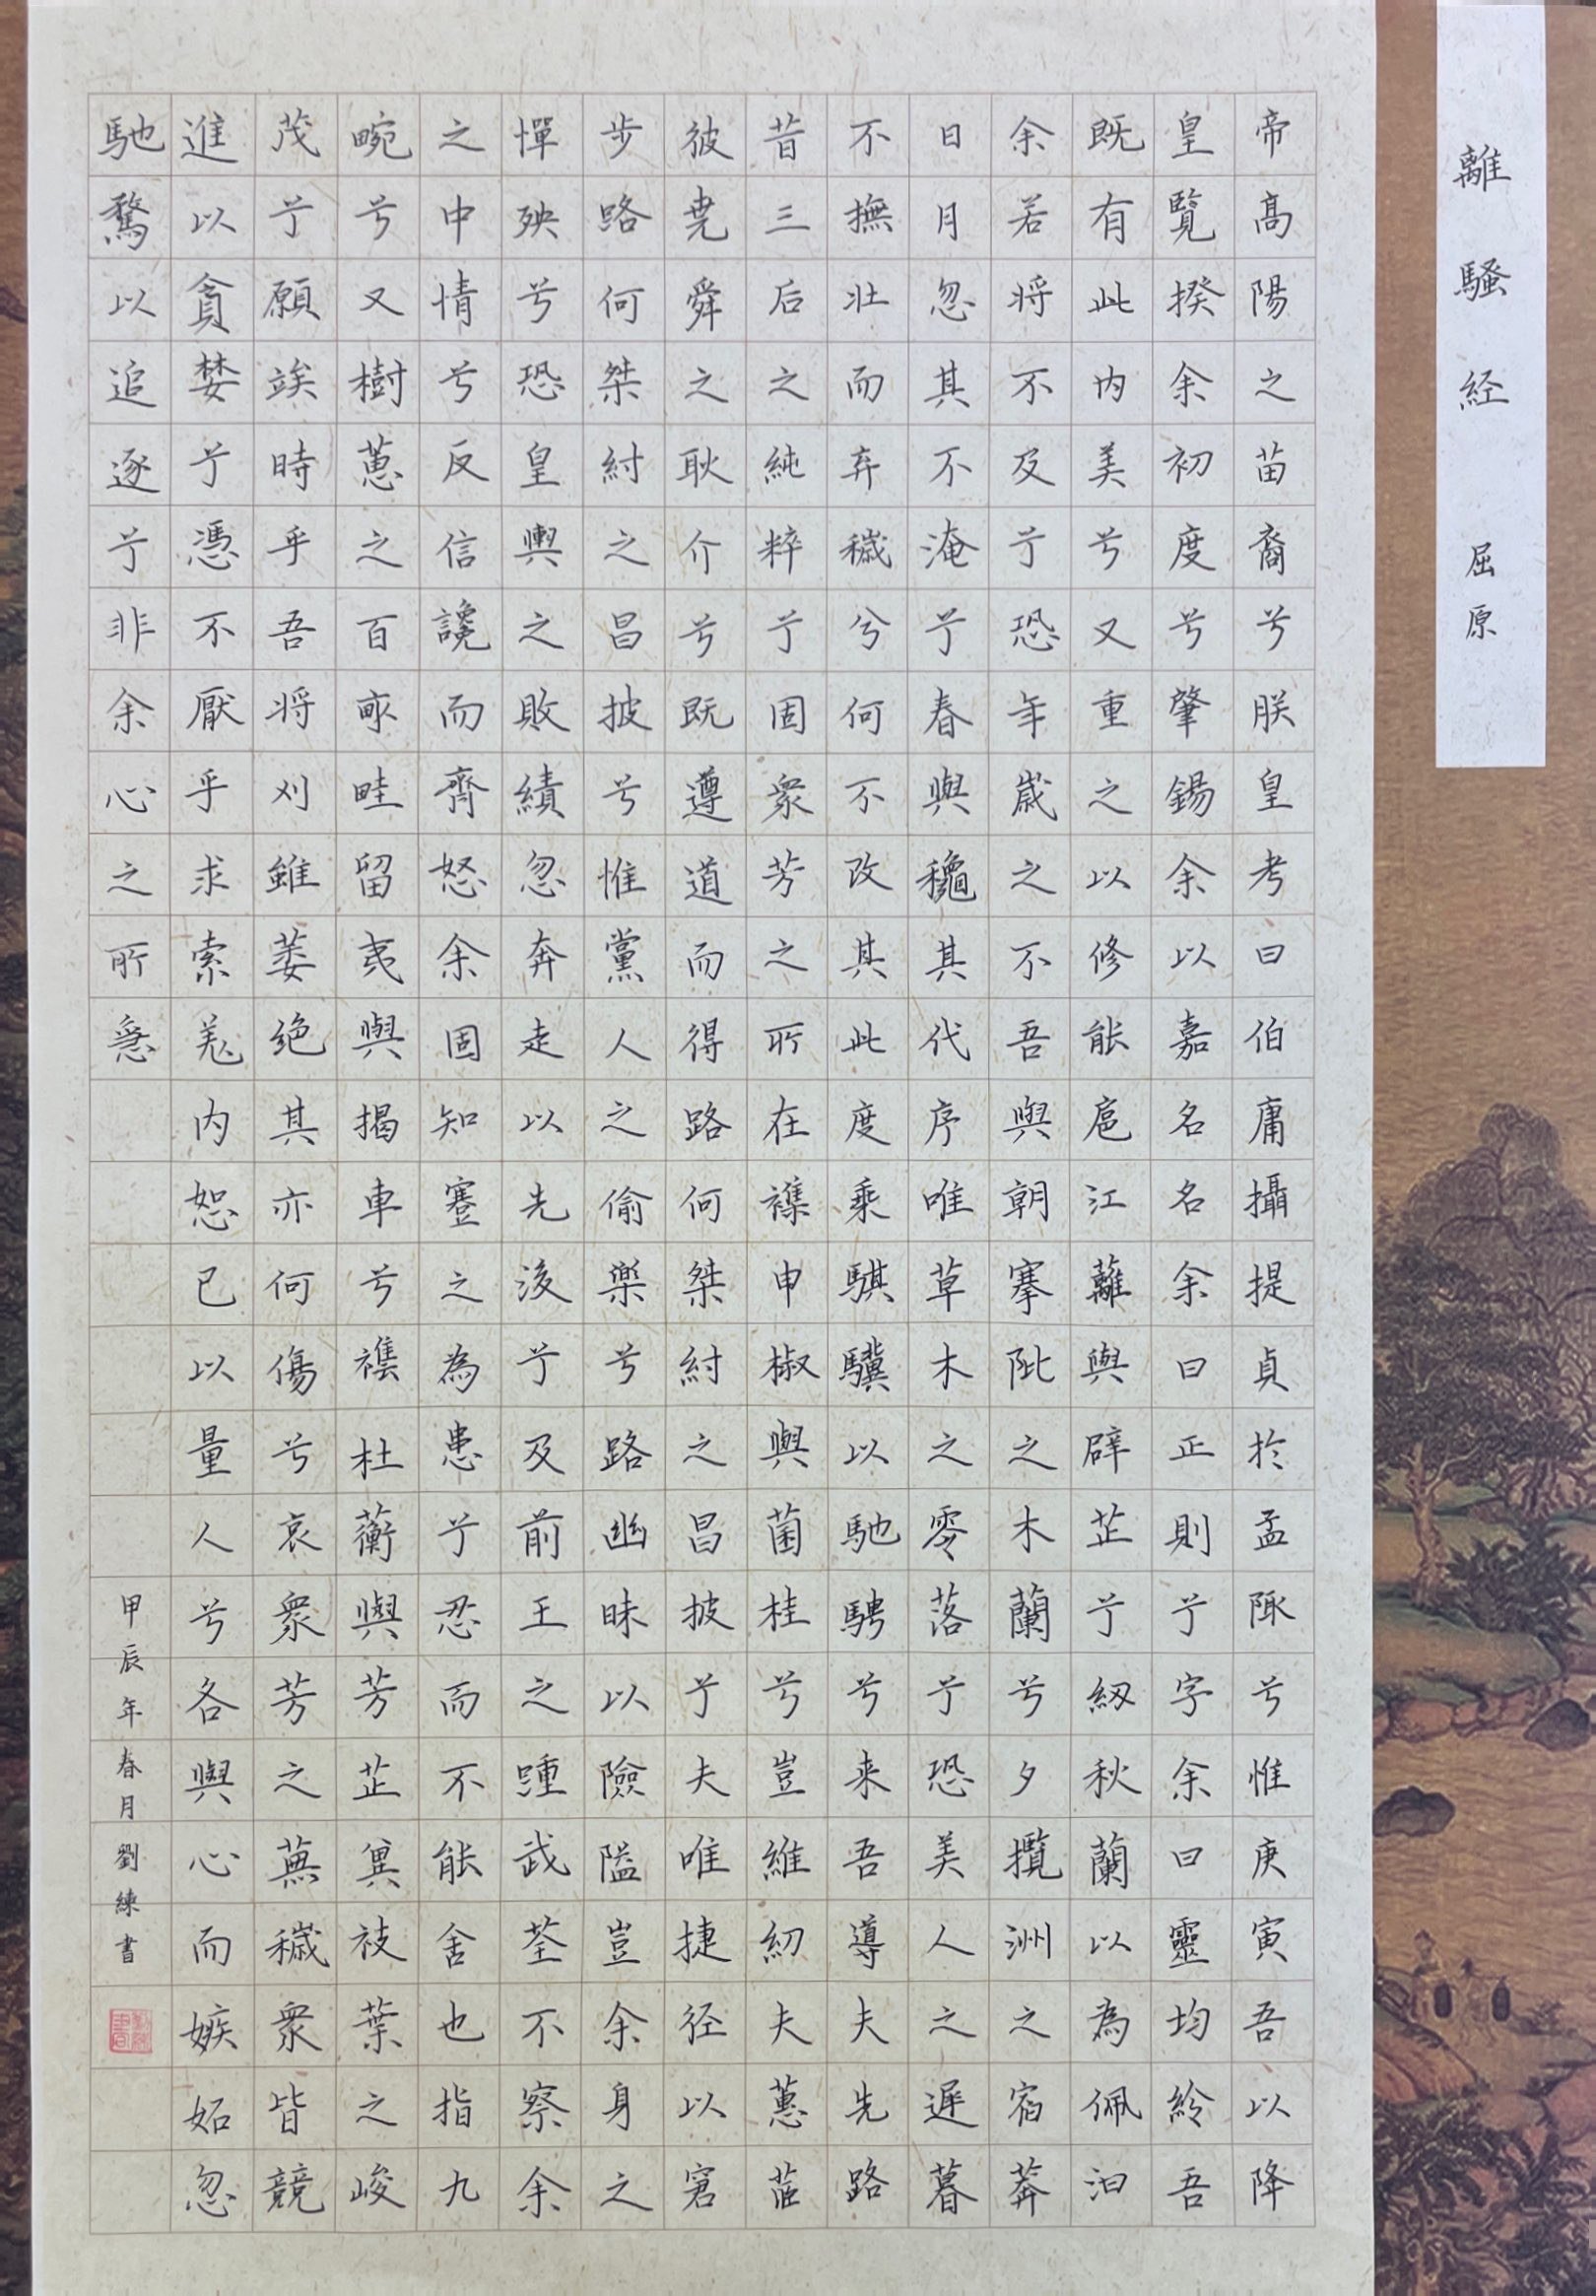 離騷經 屈原
帝高陽之苗裔兮朕皇考曰伯庸攝提貞於孟陬兮惟庚寅吾以降
皇覽揆余初度兮肇錫余以嘉名名余曰正則兮字余曰靈均紛吾
既有此内美兮又重之以修能扈江蘺與辟芷兮紉秋蘭以為佩汩
余若将不及兮恐年歲之不吾與朝搴阰之木蘭兮夕攬洲之宿莽
日月忽其不淹兮春與龝其代序唯草木之零落兮恐美人之遲暮
不撫壮而弃穢兮何不改其此度乘騏驥以馳騁兮来吾導夫先路
昔三后之純粹兮固衆芳之所在襍申椒與菌桂兮豈維紉夫蕙茝
彼堯舜之耿介兮既遵道而得路何桀紂之昌披兮夫唯捷径以窘
步路何桀紂之昌披兮惟黨人之偷樂兮路幽昧以險隘豈余身之
憚殃兮恐皇輿之敗績忽奔走以先後兮及前王之踵武荃不察余
之中情兮反信讒而齊怒余固知蹇之為患兮忍而不能舍也指九
畹兮又樹蕙之百畝畦留夷與揭車兮襍杜蘅與芳芷冀枝葉之峻
茂兮願竢時乎吾将刈雖萎絶其亦何傷兮哀衆芳之蕪穢衆皆競
進以貪婪兮憑不厭乎求索羌内恕己以量人兮各與心而嫉妬忽
馳騖以追逐兮非余心之所急
甲辰年春月劉練書